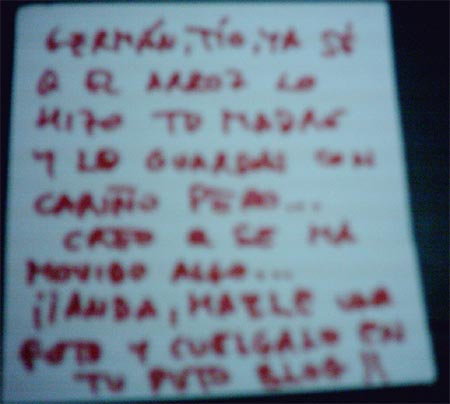 GERMÁN, TÍO, YA SÉ
Q EL ARROZ LO
HIZO TU MADRE
Y LO GUARDAS CON
CARIÑO PERO...
CREO Q SE HA
MOVIDO ALGO...
¡¡ANDA, HAZLE UNA
FOTO Y CUELGALO EN
TU PUTO BLOG!!